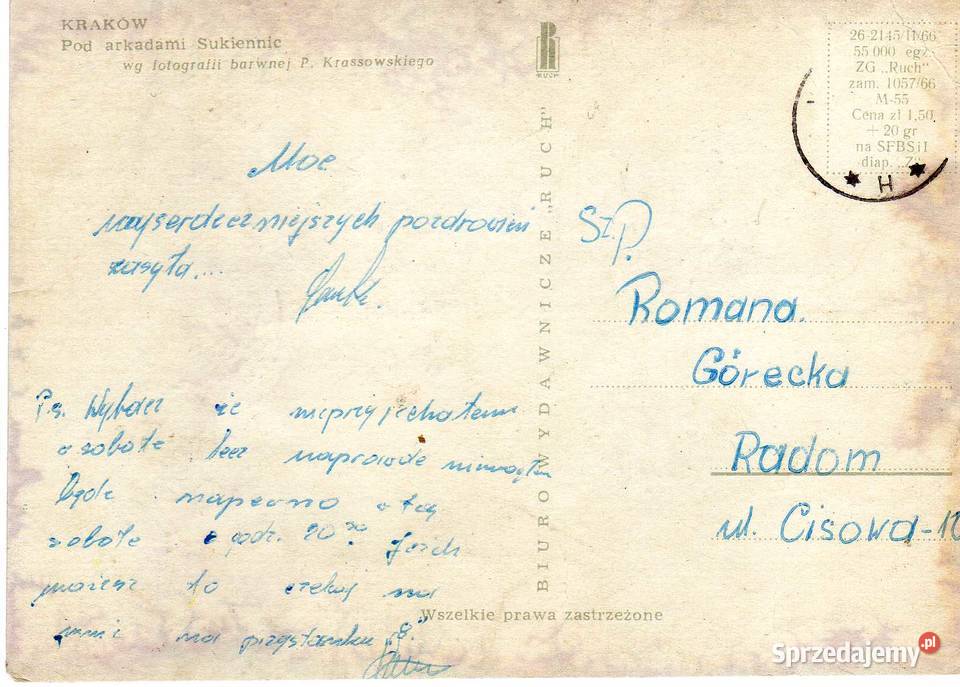 KRAKÓW
Pod arkadami Sukiennic
wg fotografii barwnej P. Krassowskiego
RUCH
26-2145/II/66
55 000 egz.
ZG „Ruch"
zam. 1057/66
M-55
Cena zł 1,50
+ 20 gr
na SFBSiI
diap. „Z"
H
Moc
najserdeczniejszych pozdrowień
zasyła....
BIURO WYDAWNICZE „RUCH"
St.P.
Romana.
Górecka
Radom
ul. Cisowa-10
P.s. Wybacz że nieprzyjechałem
w sobotę lecz naprawdę niemogłem
będę napewno w tą
sobotę o godz. 20³⁰. Jeżeli
możesz to czekaj na
mnie na przystanku „8."
Wszelkie prawa zastrzeżone
Sprzedajemy.pl